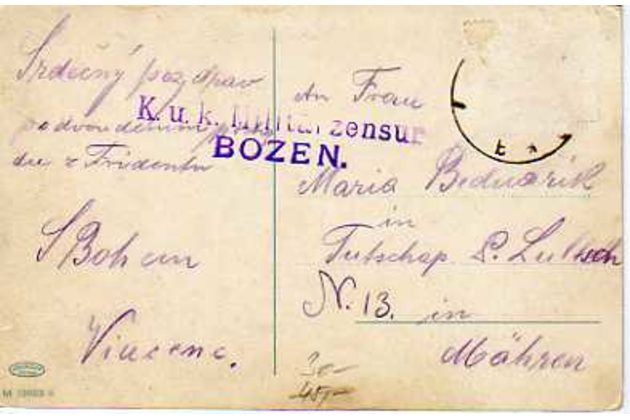 Srdečný pozdrav
po dvoudením
du z Tridentu
S Bohem
Vincenc.
K. u. k. Militärzensur
BOZEN.
An Frau
Maria Bednařik
in
Tutschap P. Lultsch
N. 13. in
Mähren
30-
45,-